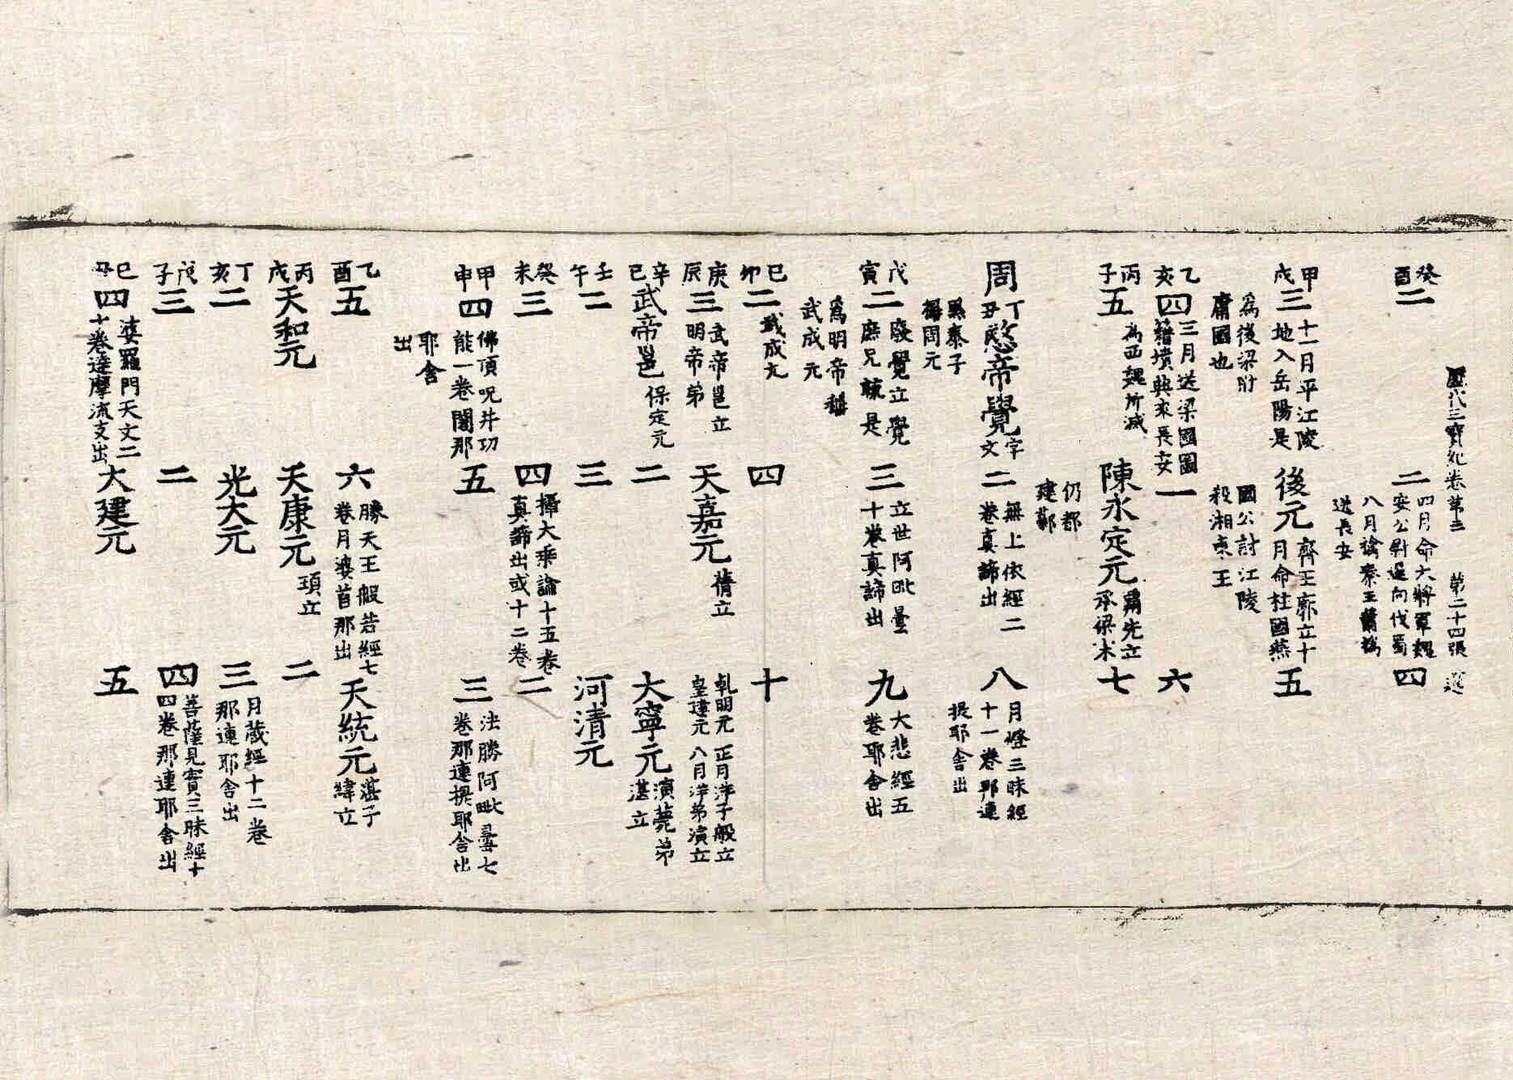 歷代三寶紀卷第三 第二十四張 𨕖
癸酉 二
二 四月命大將軍魏
安公尉遲迥伐蜀
八月擒秦王蕭撝
送長安
四
甲戌 三 十一月平江陵
地入岳陽是
為後梁附
庸國也
後元 齊王廓立十
月命柱國燕
國公討江陵
殺湘東王
五
乙亥 四 三月送梁國圖
籍墳典來長安
一
六
丙子 五 為西魏所滅
陳永定元 霸先立
承梁木
仍都
建鄴
七
周
丁丑 愍帝覺 字
文
黑泰子
稱周元
二 無上依經二
卷真諦出
八 月燈三昧經
十一卷那連
提耶舍出
戊寅 二 廢覺立覺
庶兄毓是
為明帝稱
武成元
三 立世阿毗曇
十卷真諦出
九 大悲經五
卷耶舍出
己卯 二 武成元
四
十
庚辰 三 武帝邕立
明帝弟
天嘉元 蒨立
乾明元 正月洋子殷立
皇建元 八月洋弟演立
辛巳 武帝邕 保定元
二
大寧元 演薨弟
湛立
壬午 二
三
河清元
癸未 三
四 攝大乘論十五卷
真諦出或十二卷
二
甲申 四 佛頂呪并功
能一卷闍那
耶舍
出
五
三 法勝阿毗曇七
卷那連提耶舍出
乙酉 五
六 勝天王般若經七
卷月婆首那出
天統元 湛子
緯立
丙戌 天和元
天康元 頊立
二
丁亥 二
光大元
三 月藏經十二卷
那連耶舍出
戊子 三
二
四 菩薩見實三昧經十
四卷那連耶舍出
己丑 四 婆羅門天文二
十卷達摩流支出
大建元
五